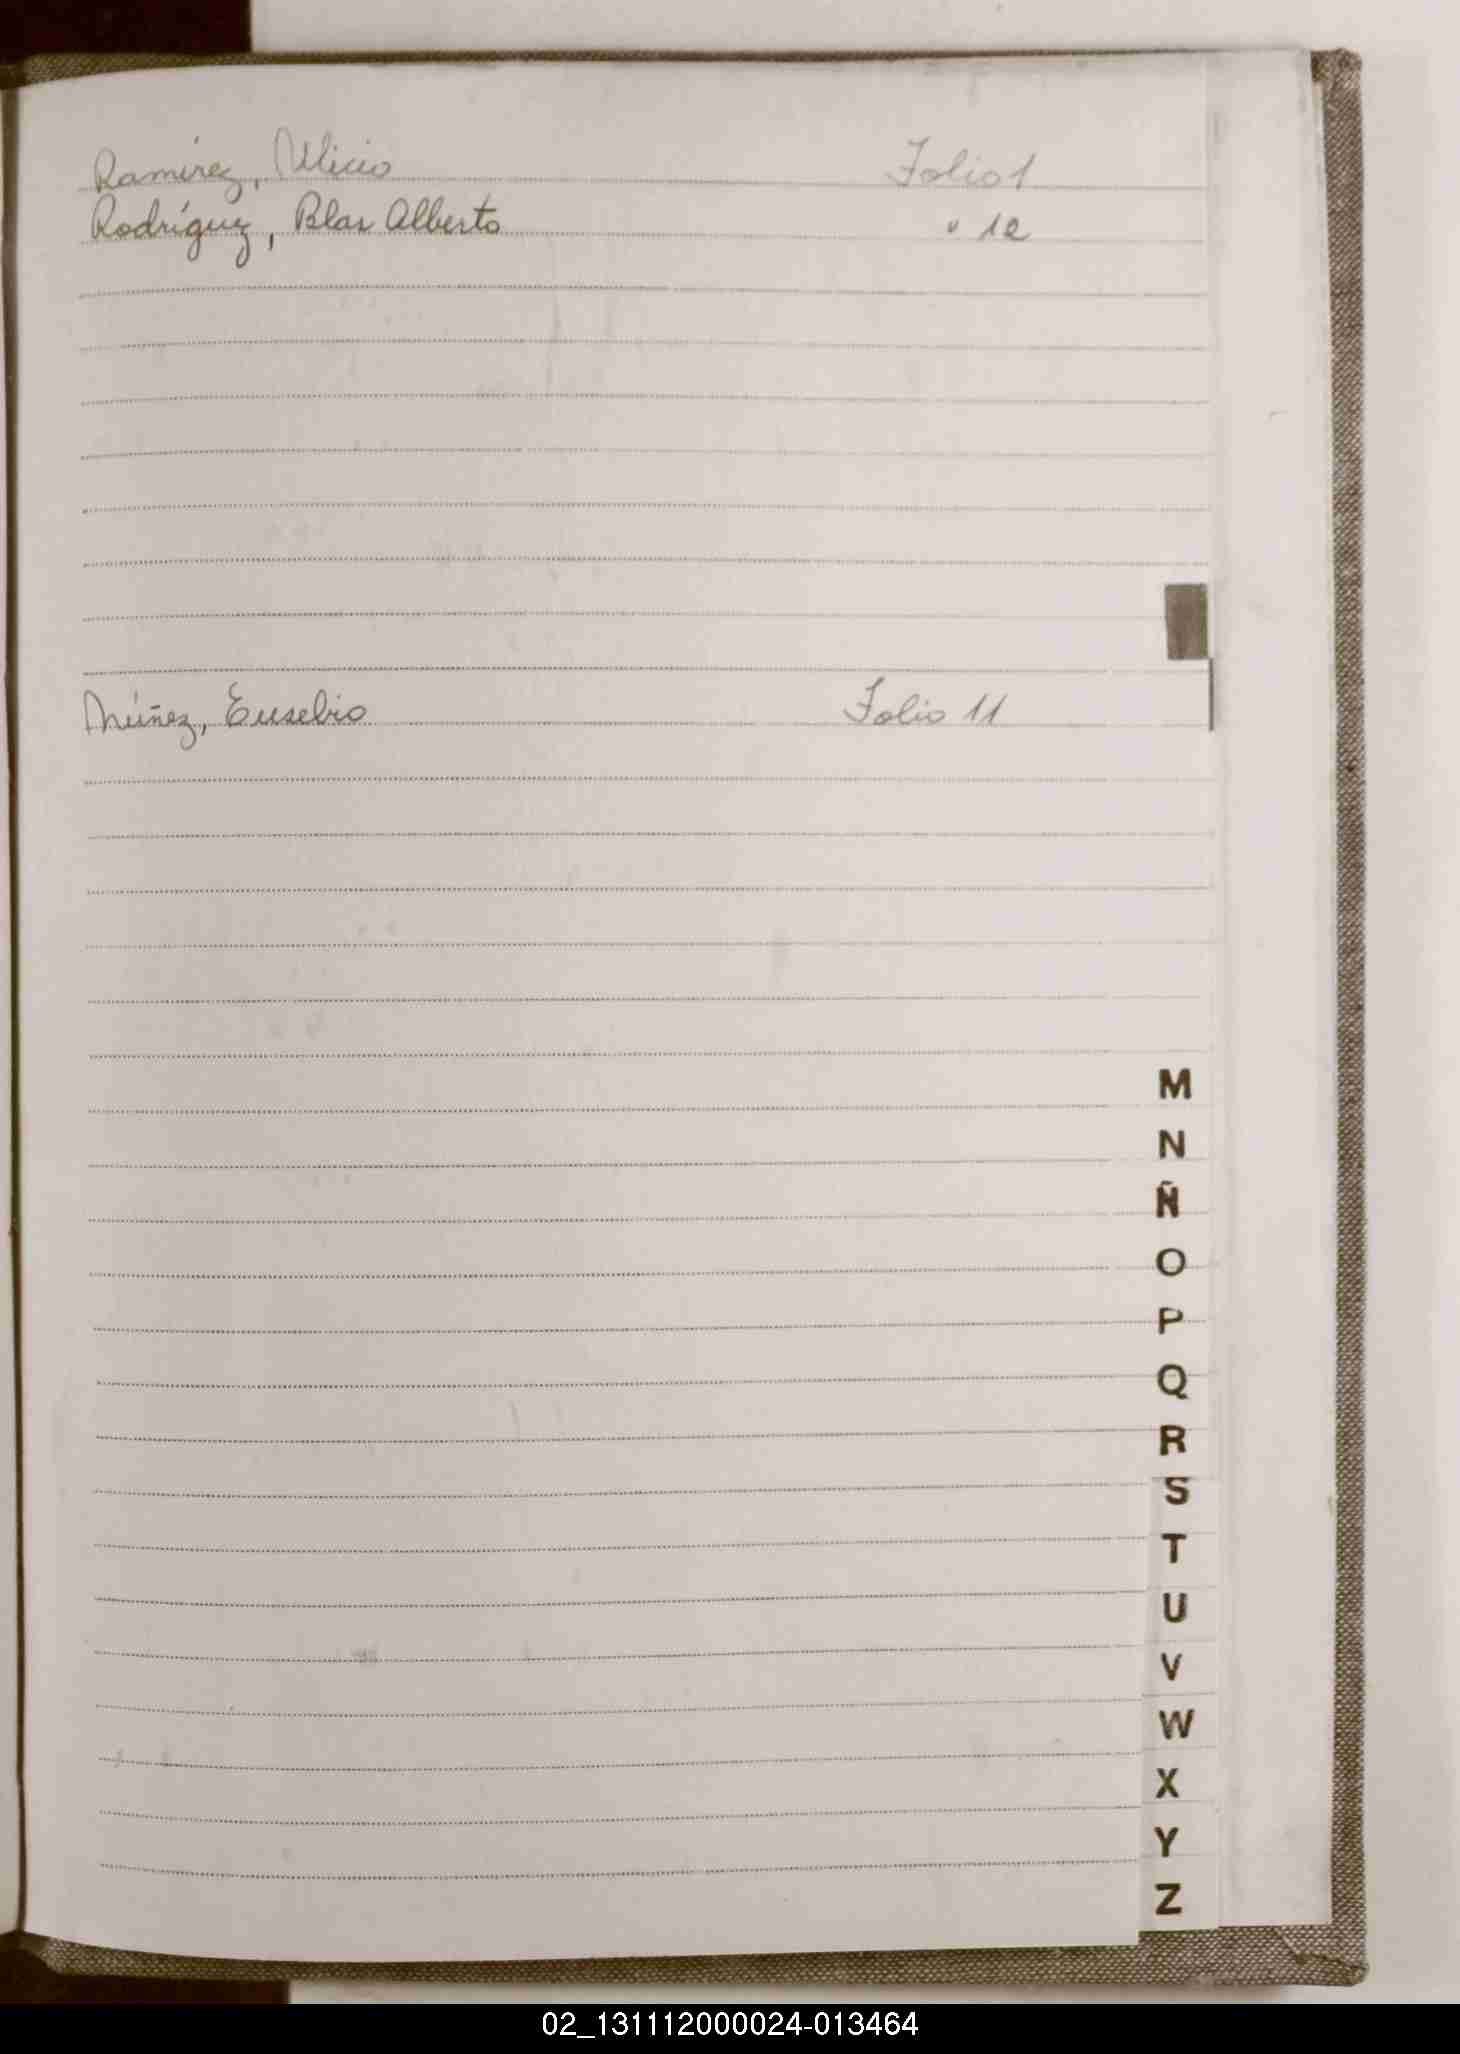 Ramírez, Alicio Folio 1
Rodríguez, Blas Alberto " 12
Núñez, Eusebio Folio 11
M
N
Ñ
O
P
Q
R
S
T
U
V
W
X
Y
Z
02_131112000024-013464